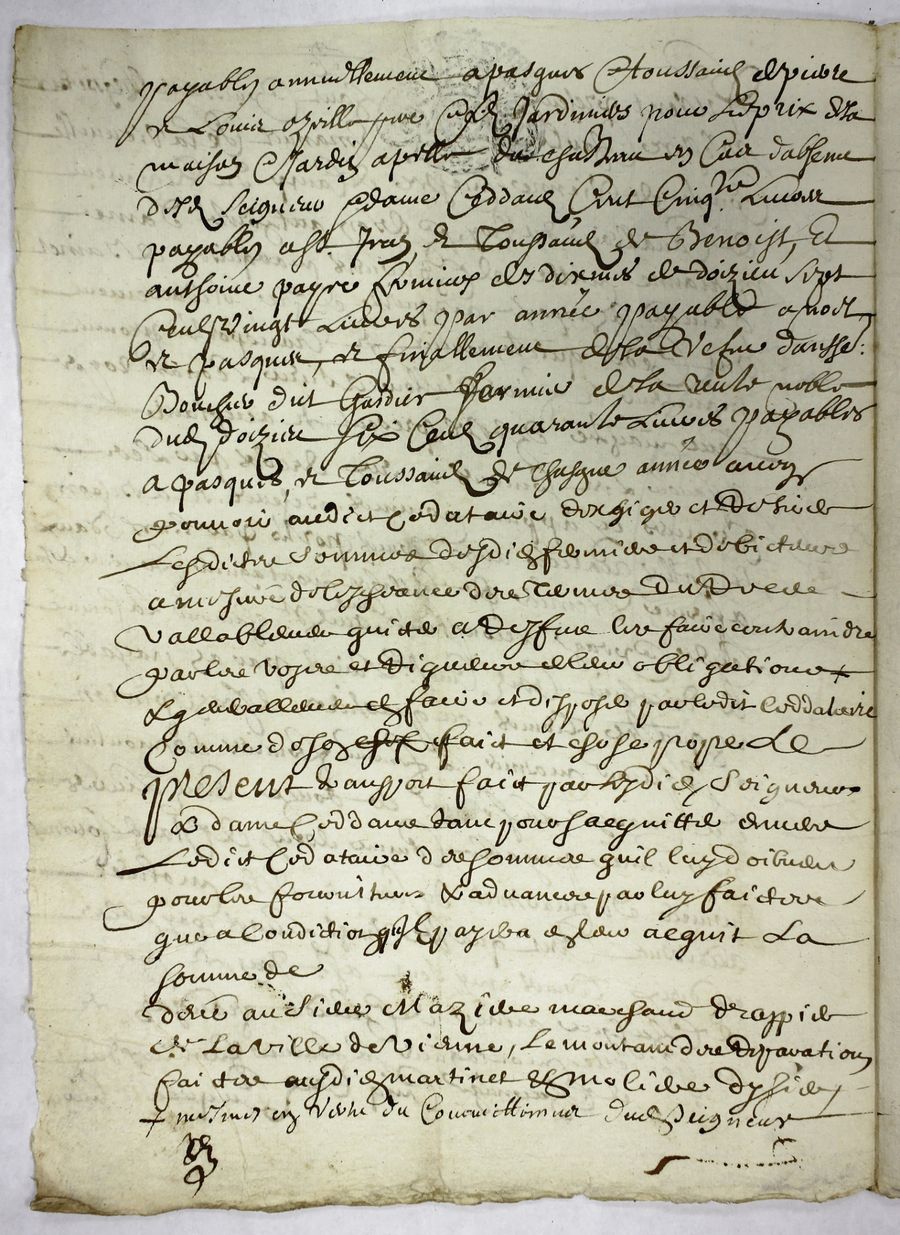 payables annuellement a pasques & toussaind de pierre
& Louis ozille pere & filz Jardiniers pour le prix de la
maison & Jardin apellé du chasteau en Cas d'absence
desd Seigneur & dame Ceddand Cent Cinqte Livres
payables a st. Jean & Toussaind de Benoist, Et
anthoine payre fermiers des dixmes de doizieu sept
Cent vingt Livres par année payable a noel
& pasques, & finallement de la vefue d'ansse:
Boucher dit Gardier fermier de la rente noble
dud doizieu six Cent quarante Livres payables
a pasques, & Toussaind de chasque année auec
pouuoir audict Ceddataire d'exhiger et
Lesdictes sommes desdictz fermiers et debicteurs
a mesure de l'escheance des Termes
vallablement quicter a deffaut les faire contraindre
par les voyes et rigueurs de leur obligations +
& generallement faire et disposer par ledit Ceddataire
Comme de fait et chose propre Le
present transport faict par lesdictz Seigneur
& dame Ceddans tant pour s'acquitter enuers
Ledict Ceddataire des sommes quil luy doibuent
pour les fournitures & aduances par luy faictes
que a Condition quil payera a leur acquit La
somme de
deue au Sieur Mazière marchand drappier
de La Ville de Vienne, Le montant des reparations
faictes aux dictz martinet & molière
+ mesmes en vertu du Committimus dud Seigneur